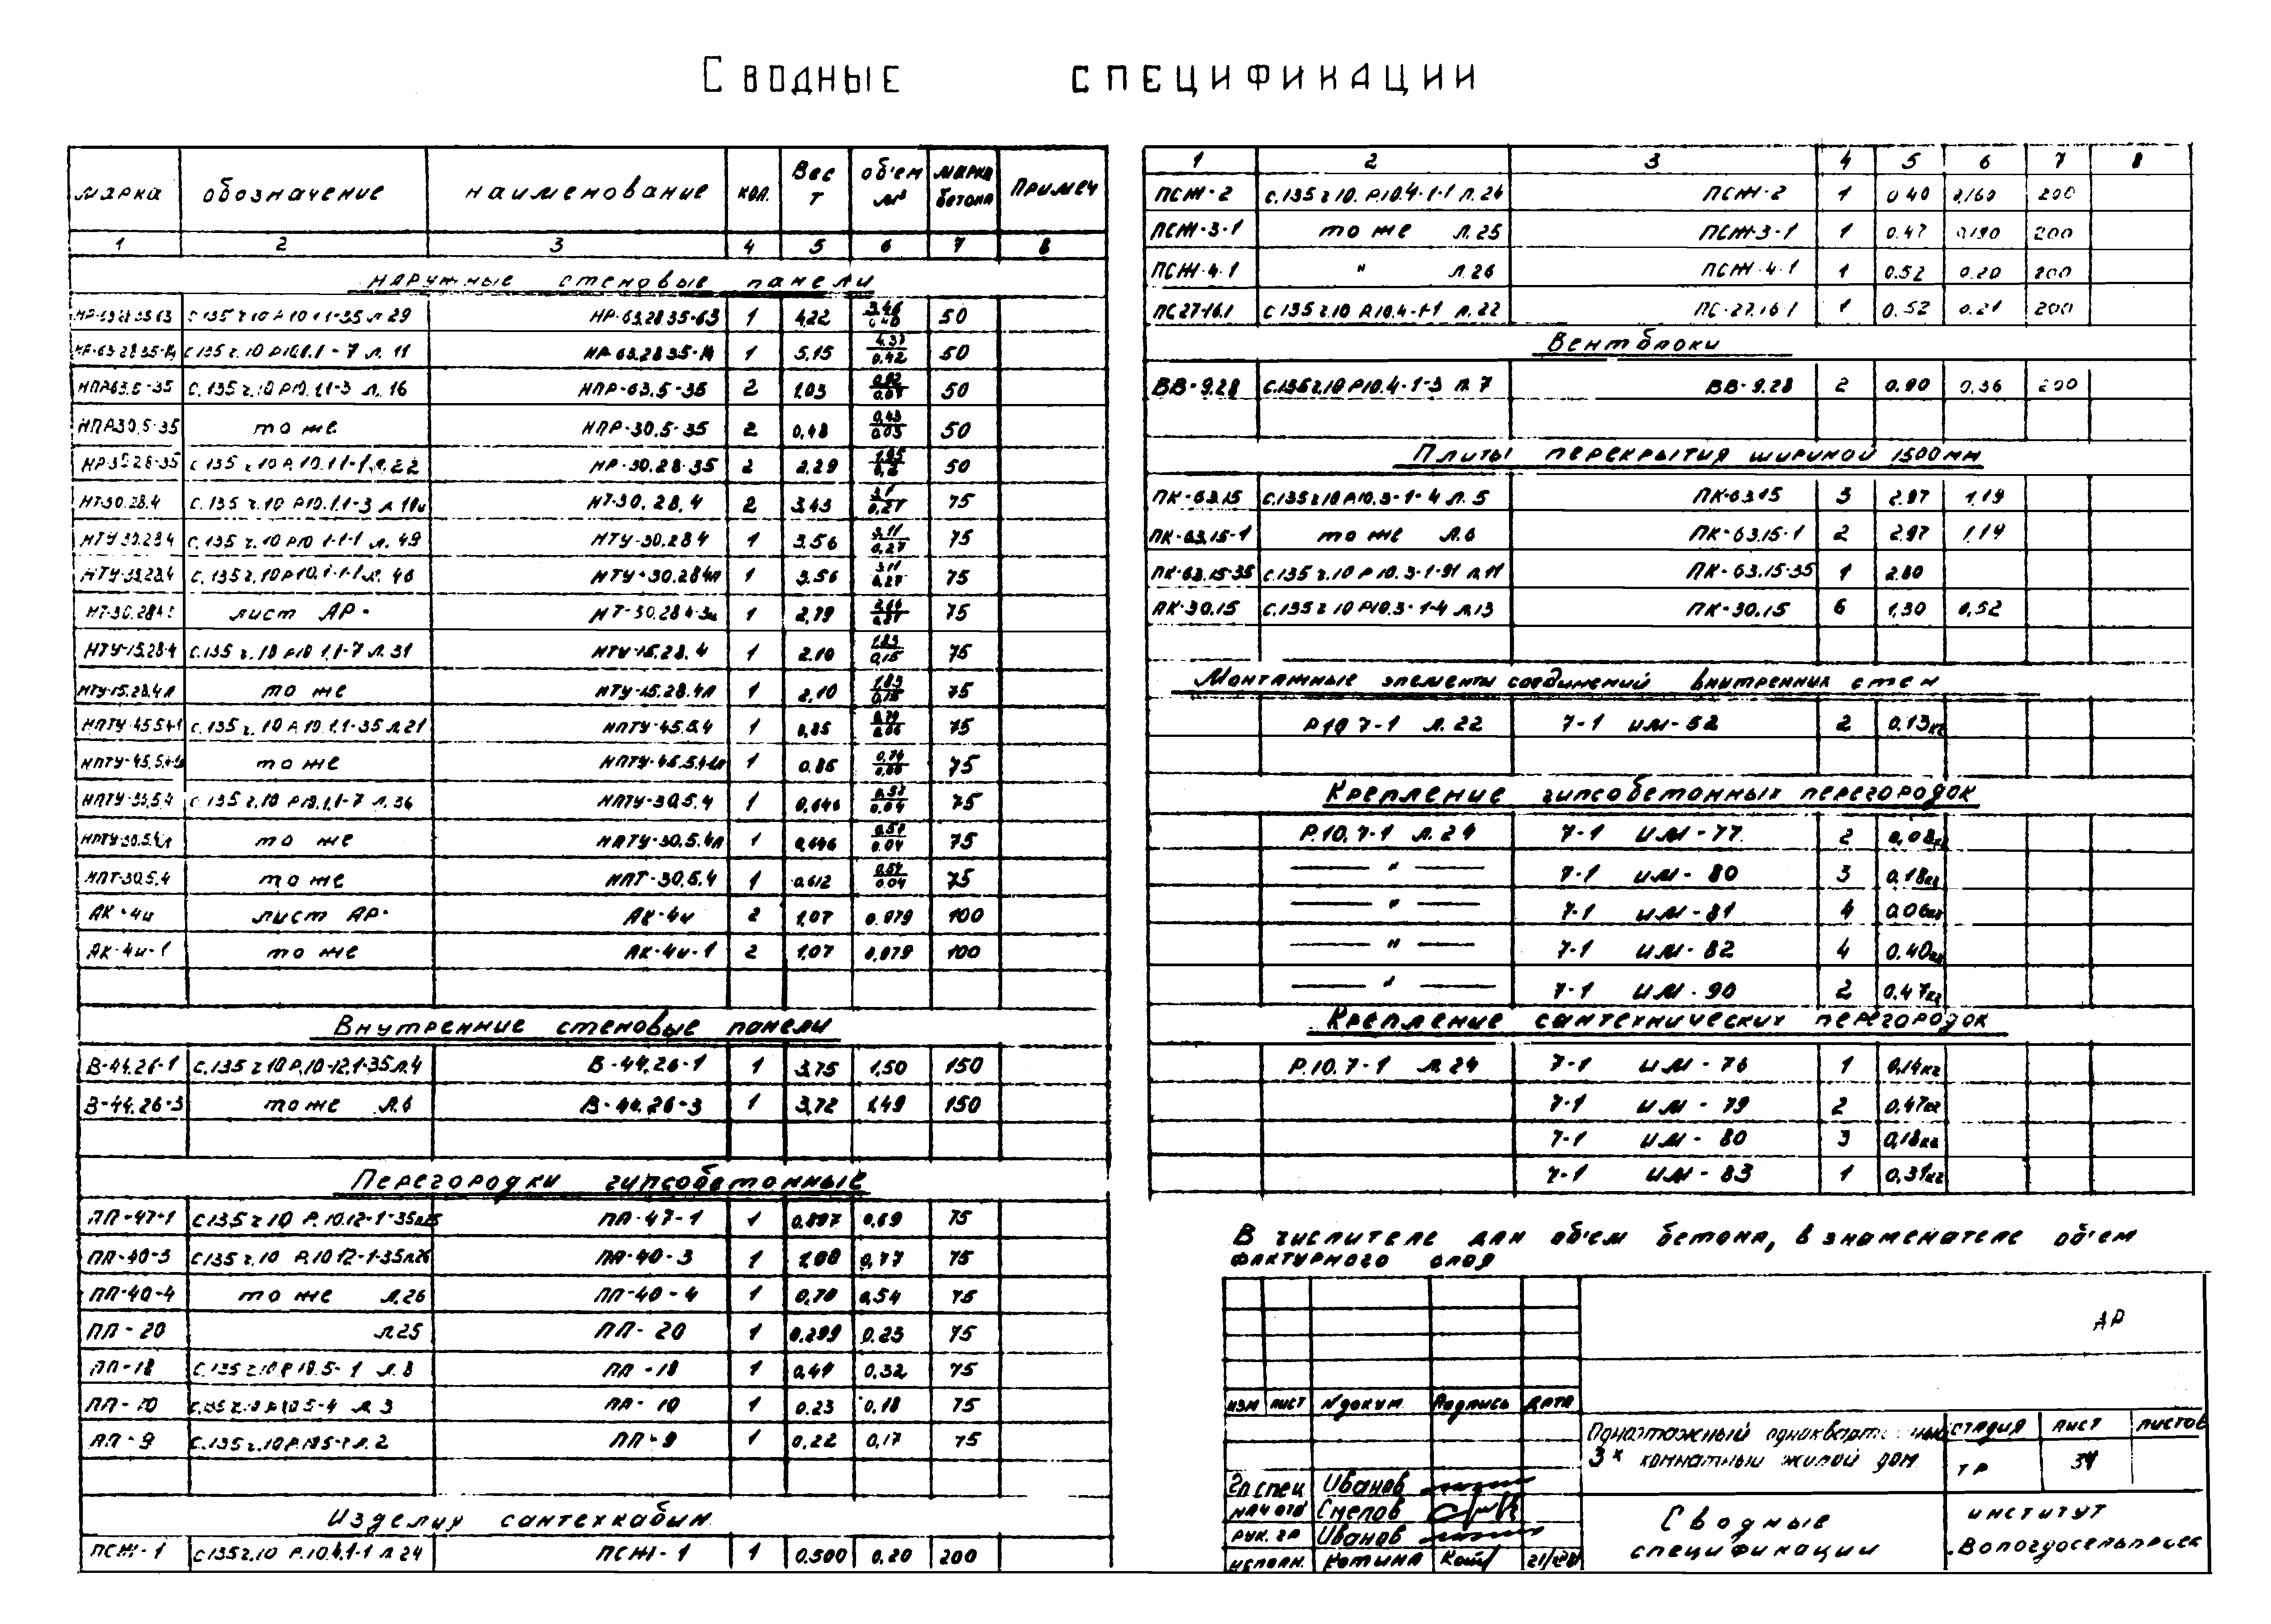 Сводные спецификации
марка обозначение наименование кол. Вес т объем м³ марка бетона Примеч
1 2 3 4 5 6 7 8
Наружные стеновые панели
НР-63.28.35-63 С.135 г.10 Р.10.1.1-35 л.29 НР-63.28.35-63 1 4,22 50
С.135 г.10 Р.10.1.1-7 л.11 1 5.15 4.37/0.42 50
НПР63.5-35 С.135 г.10 Р10.1.1-3 л.16 НПР-63.5-35 2 1,03 50
НПР30.5-35 то же НПР-30.5-35 2 0,48 0,43/0.03 50
НР-30.28-35 С.135 г.10 Р.10.1.1-1 л.22 НР-30.28-35 2 2.29 50
НТ-30.28.4 С.135 г.10 Р10.1.1-3 НТ-30.28.4 2 3.43 3,1/0,27 75
НТУ-30.28.4 С.135 г.10 Р10 1-1-1 л.49 НТУ-30.28.4 1 3.56 3,11/0,27 75
С.135 г.10 Р10.1-1-1 л.46 НТУ-30.28.4л 1 3.56 3,11/0,27 75
лист АР- 1 2,79 75
НТУ-15.28.4 С.135 г.10 Р10 1.1-7 л.31 НТУ-15.28.4 1 2.10 1,83/0,15 75
НТУ-15.28.4л то же НТУ-15.28.4л 1 2,10 1.83/0,15 75
С.135 г.10 Р.10.1.1-35 л.21 НПТУ-45.5.4 1 0,85 0,74/0.06 75
то же 1 0.85 0,74/0,06 75
НПТУ-30.5.4 С.135 г.10 Р10.1.1-7 л.36 НПТУ-30.5.4 1 0,646 75
НПТУ-30.5.4л то же НПТУ-30.5.4л 1 0,646 75
НПТ-30.5.4 то же НПТ-30.5.4 1 0.612 75
АК-4и лист АР- АК-4и 2 1,07 0.079 100
АК-4и-1 то же АК-4и-1 2 1,07 0,079 100
Внутренние стеновые панели
В-44.26-1 С.135 г.10 Р.10-12.1-35 л.4 В-44.26-1 1 3,75 1,50 150
В-44.26-3 то же л.6 В-44.26-3 1 3,72 1,49 150
Перегородки гипсобетонные
ПП-47-1 С135 г.10 Р.10.12-1-35 л.25 ПП-47-1 1 0.897 0,69 75
ПП-40-3 С135 г.10 Р.10 12-1-35 л.26 ПП-40-3 1 1,00 0,77 75
ПП-40-4 то же л.26 ПП-40-4 1 0,70 0,54 75
ПП-20 л25 ПП-20 1 0.299 0.23 75
ПП-18 С.135 г.10 Р.10.5-1 л.8 ПП-18 1 0,41 0,32 75
ПП-10 С.135 г.10 Р.10.5-4 л.3 ПП-10 1 0.23 0,18 75
ПП-9 ПП-9 1 0,22 0,17 75
Изделия сантехкабин
ПСЖ-1 С135 г.10 Р.10.4.1-1 л 24 ПСЖ-1 1 0.500 0,20 200
1 2 3 4 5 6 7 8
ПСЖ-2 С.135 г.10. Р.10.4-1-1 л.24 ПСЖ-2 1 0.40 0,160 200
ПСЖ-3-1 то же л.25 ПСЖ-3-1 1 0.47 0,190 200
ПСЖ-4-1 " л.26 ПСЖ-4-1 1 0.52 0.20 200
ПС27-16.1 С.135 г.10 Р.10.4-1-1 л.22 ПС-27.16.1 1 0.52 0.21 200
Вентблоки
ВВ-9.28 С.135 г.10 Р10.4-1-3 л.7 ВВ-9.28 2 0.90 0,36 200
Плиты перекрытия шириной 1500мм
ПК-63.15 С.135 г 10 Р10.3-1-4 л.5 ПК-63.15 3 2.97 1,19
ПК-63.15-1 то же л.6 ПК-63.15-1 2 2.97 1,19
ПК-63.15-35 С.135 г.10 Р10.3-1-91 л.11 ПК-63.15-35 1 2.80
ПК-30.15 С.135 г 10 Р10.3-1-4 л.13 ПК-30.15 6 1,30 0,52
Монтажные элементы соединений внутренних стен
Р10 7-1 л.22 7-1 ИМ-52 2 0.13кг
Крепление гипсобетонных перегородок
Р.10.7-1 л.24 7-1 ИМ-77 2 0,08кг
" 7-1 ИМ-80 3 0.18кг
" 7-1 ИМ-81 4 0.06кг
" 7-1 ИМ-82 4 0.40кг
" 7-1 ИМ-90 2 0.47кг
Крепление сантехнических перегородок
Р.10.7-1 л.24 7-1 ИМ-76 1 0,14кг
7-1 ИМ-79 2 0,47кг
7-1 ИМ-80 3 0,18кг
7-1 ИМ-83 1 0,31кг
В числителе дан объем бетона, в знаменателе объем
фактурного слоя
АР
изм лист №докум. Подпись дата
Одноэтажный одноквартирный
3х комнатный жилой дом
стадия лист листов
ТР 34
Гл спец Иванов
нач отд Смелов
рук. гр Иванов
исполн. Котина
Сводные
спецификации
институт
Вологдосельпроект